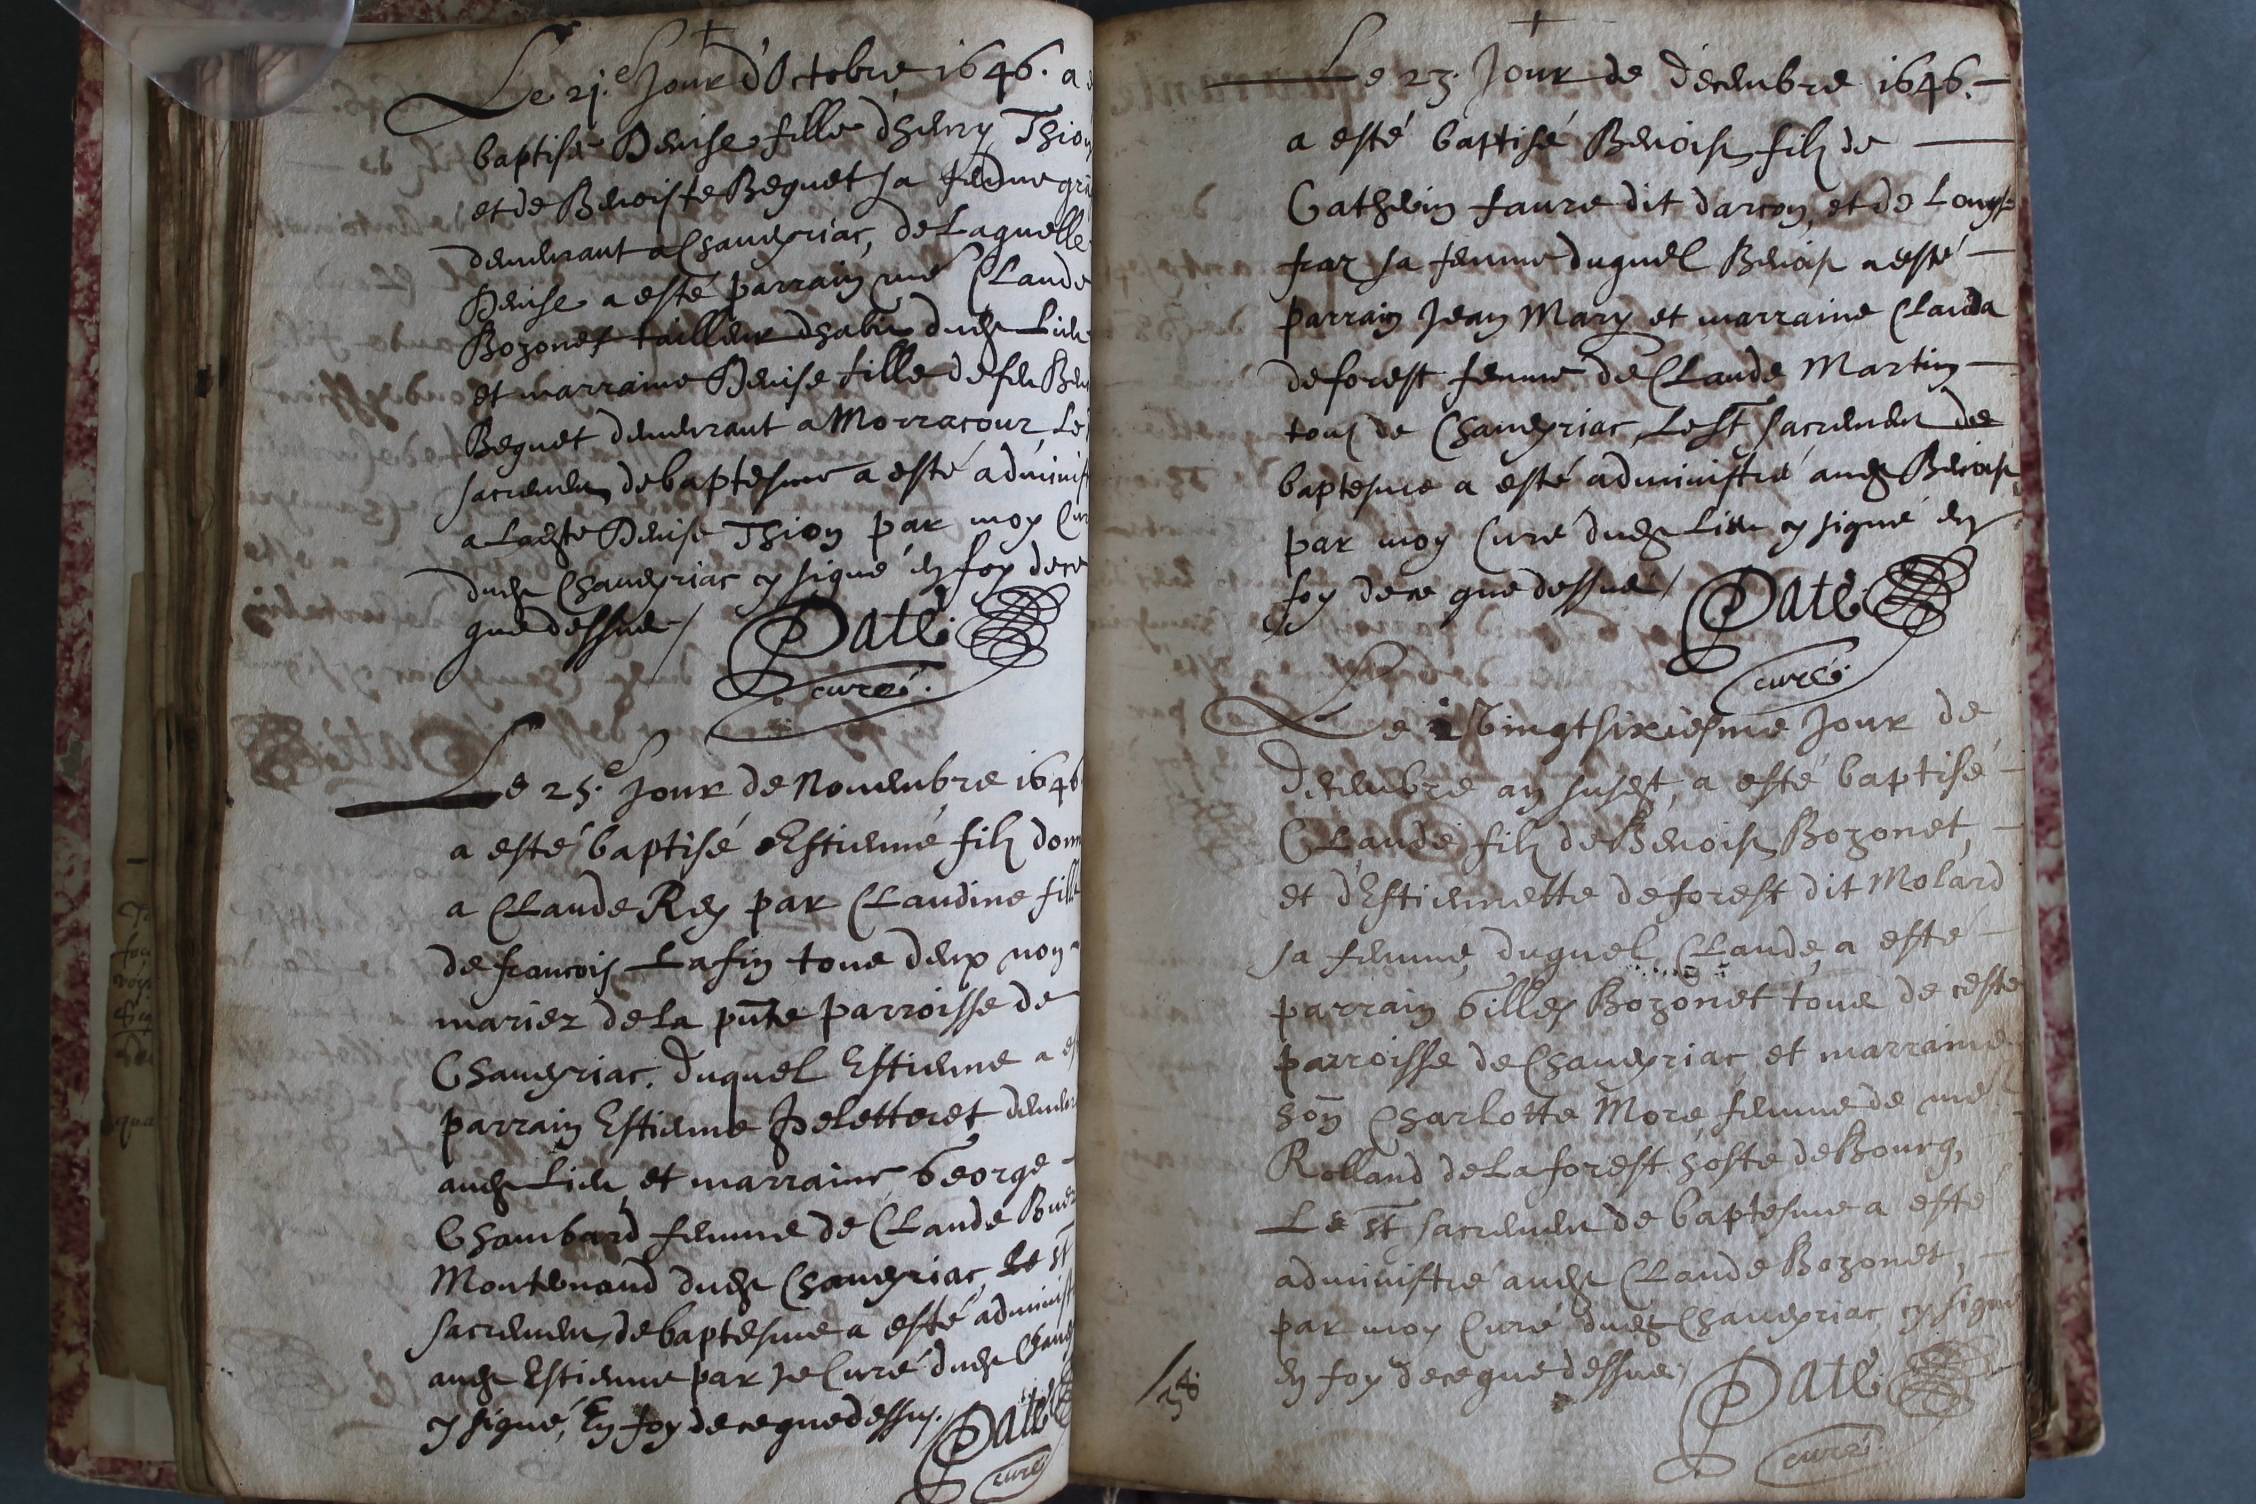 Le 21.e Jour d'Octobre 1646. a
baptisé Denise fille d'henry Thion
et de Benoiste Beguet sa femme
demeurant a Chaveyriac, de Laquelle
Denise a esté parrain me Claude
Bozonet tailleur dhabit dudt Lieu
et marraine Denise fille de feu
Beguet demeurant a Morracour, Le
sacrement de baptesme a esté
a Ladte Denise Thion par moy
dudt Chaveyriac cy signé en foy de ce
que dessus /
Paté
curé.
Le 25.e Jour de Novembre 1646
a esté baptisé Estienne filz
a Claude Rey par Claudine
de francois Lafin tous deux non
mariez de la pnte parroisse de
Chaveyriac. duquel Estienne a
parrain Estienne Peletteret
audt Lieu et marraine George
Chambard femme de Claude
Montenand dudt Chaveyriac, Le st
sacrement de baptesme a esté
audt Estienne par Je Curé dudt
cy signé, En foy de ce que dessus.
Paté
curé
Le 23. Jour de décembre 1646.
a esté baptisé Benoist filz de
Cathelin faure dit darcon, et de
sa femme duquel Benoist a esté
parrain Jean Mary et marraine Clauda
deforest femme de Claude Martin
tous de Chaveyriac, Le st sacrement de
baptesme a esté administré audt Benoist
par moy Curé dudt Lieu cy signé en
foy de ce que dessus /
Paté
curé.
Le vingtsixiesme Jour de
décembre an susdt, a esté baptisé
Claude filz de Benoist Bozonet,
et d'Estiennette deforest dit Molard
sa femme, duquel Claude a esté
parrain Gilles Bozonet tous de ceste
parroisse de Chaveyriac, et marraine
hon Charlotte More femme de me
Rolland de Laforest hoste de Bourg,
Le st sacrement de baptesme a esté
administré audt Claude Bozonet,
par moy Curé dudt Chaveyriac cy signé
en foy de ce que dessus /
38.
Paté
curé.